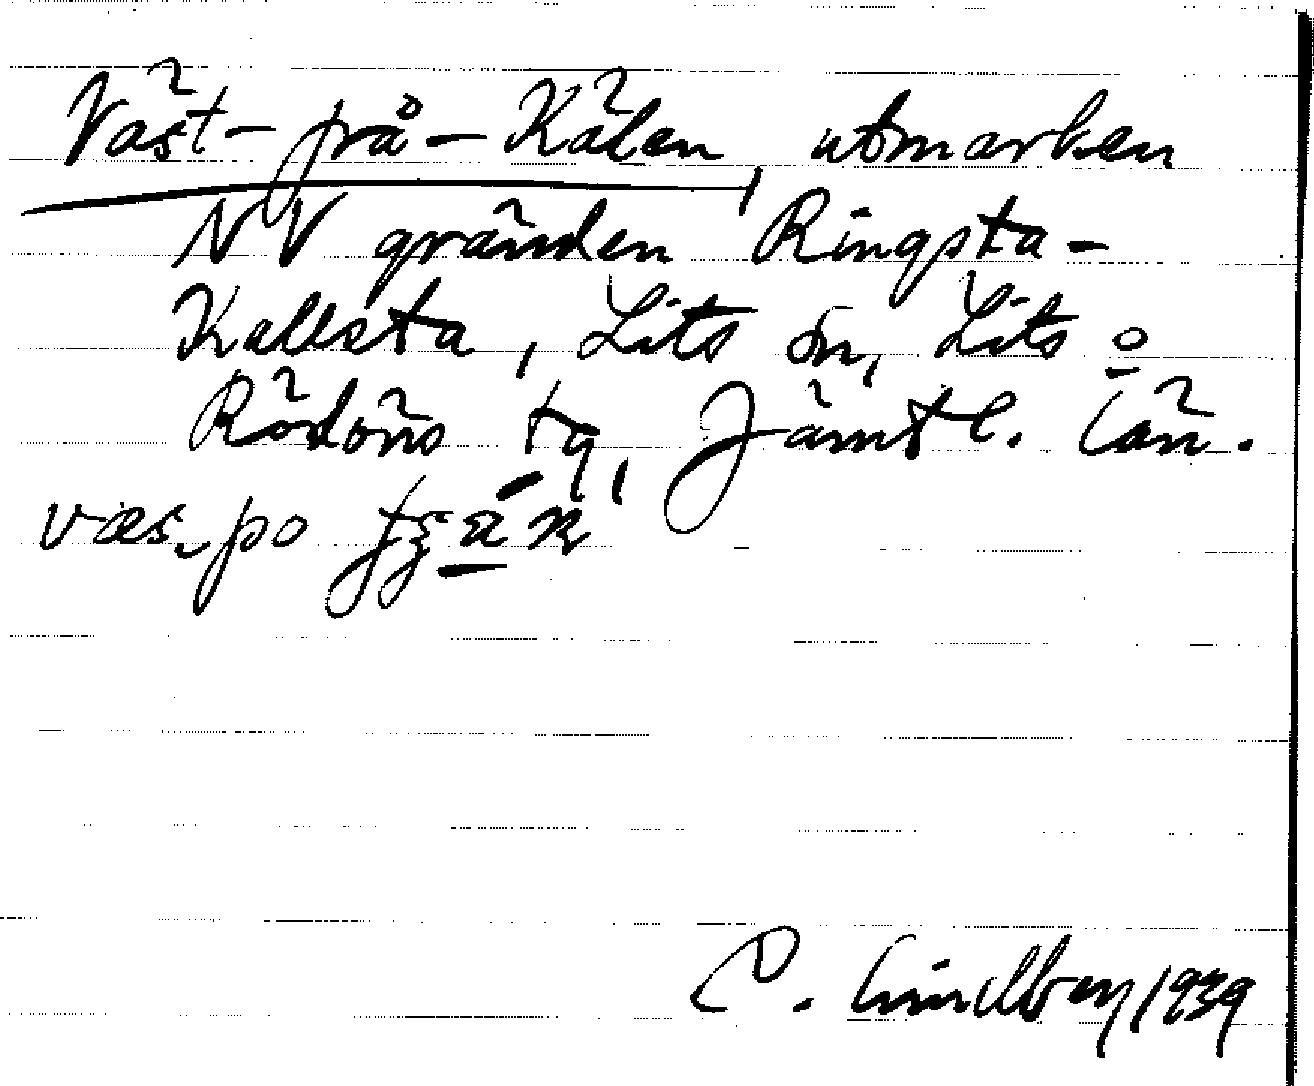 Väst-på-Kälen, utmarken
NV gränden Ringsta-
Kallsta, Lits sn, Lits o
Rödöns tg, Jämtl. län.
væs, po
C. Lindberg 1939